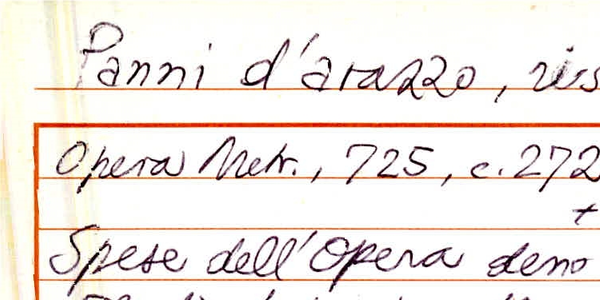 Panni d'arazzo,
Opera Metr., 725, c. 272
+
Spese dell'Opera